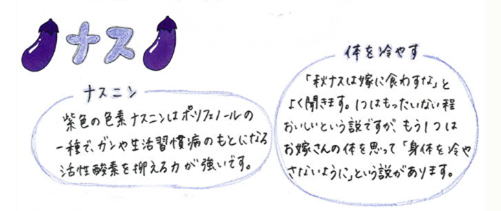 ナス
ナスニン
紫色の色素ナスニンはポリフェノールの
一種で、ガンや生活習慣病のもとになる
活性酸素を抑える力が強いです。
体を冷やす
「秋ナスは嫁に食わすな」と
よく聞きます。1つはもったいない程
おいしいという説ですが、もう1つは
お嫁さんの体を思って「身体を冷や
さないように」という説があります。